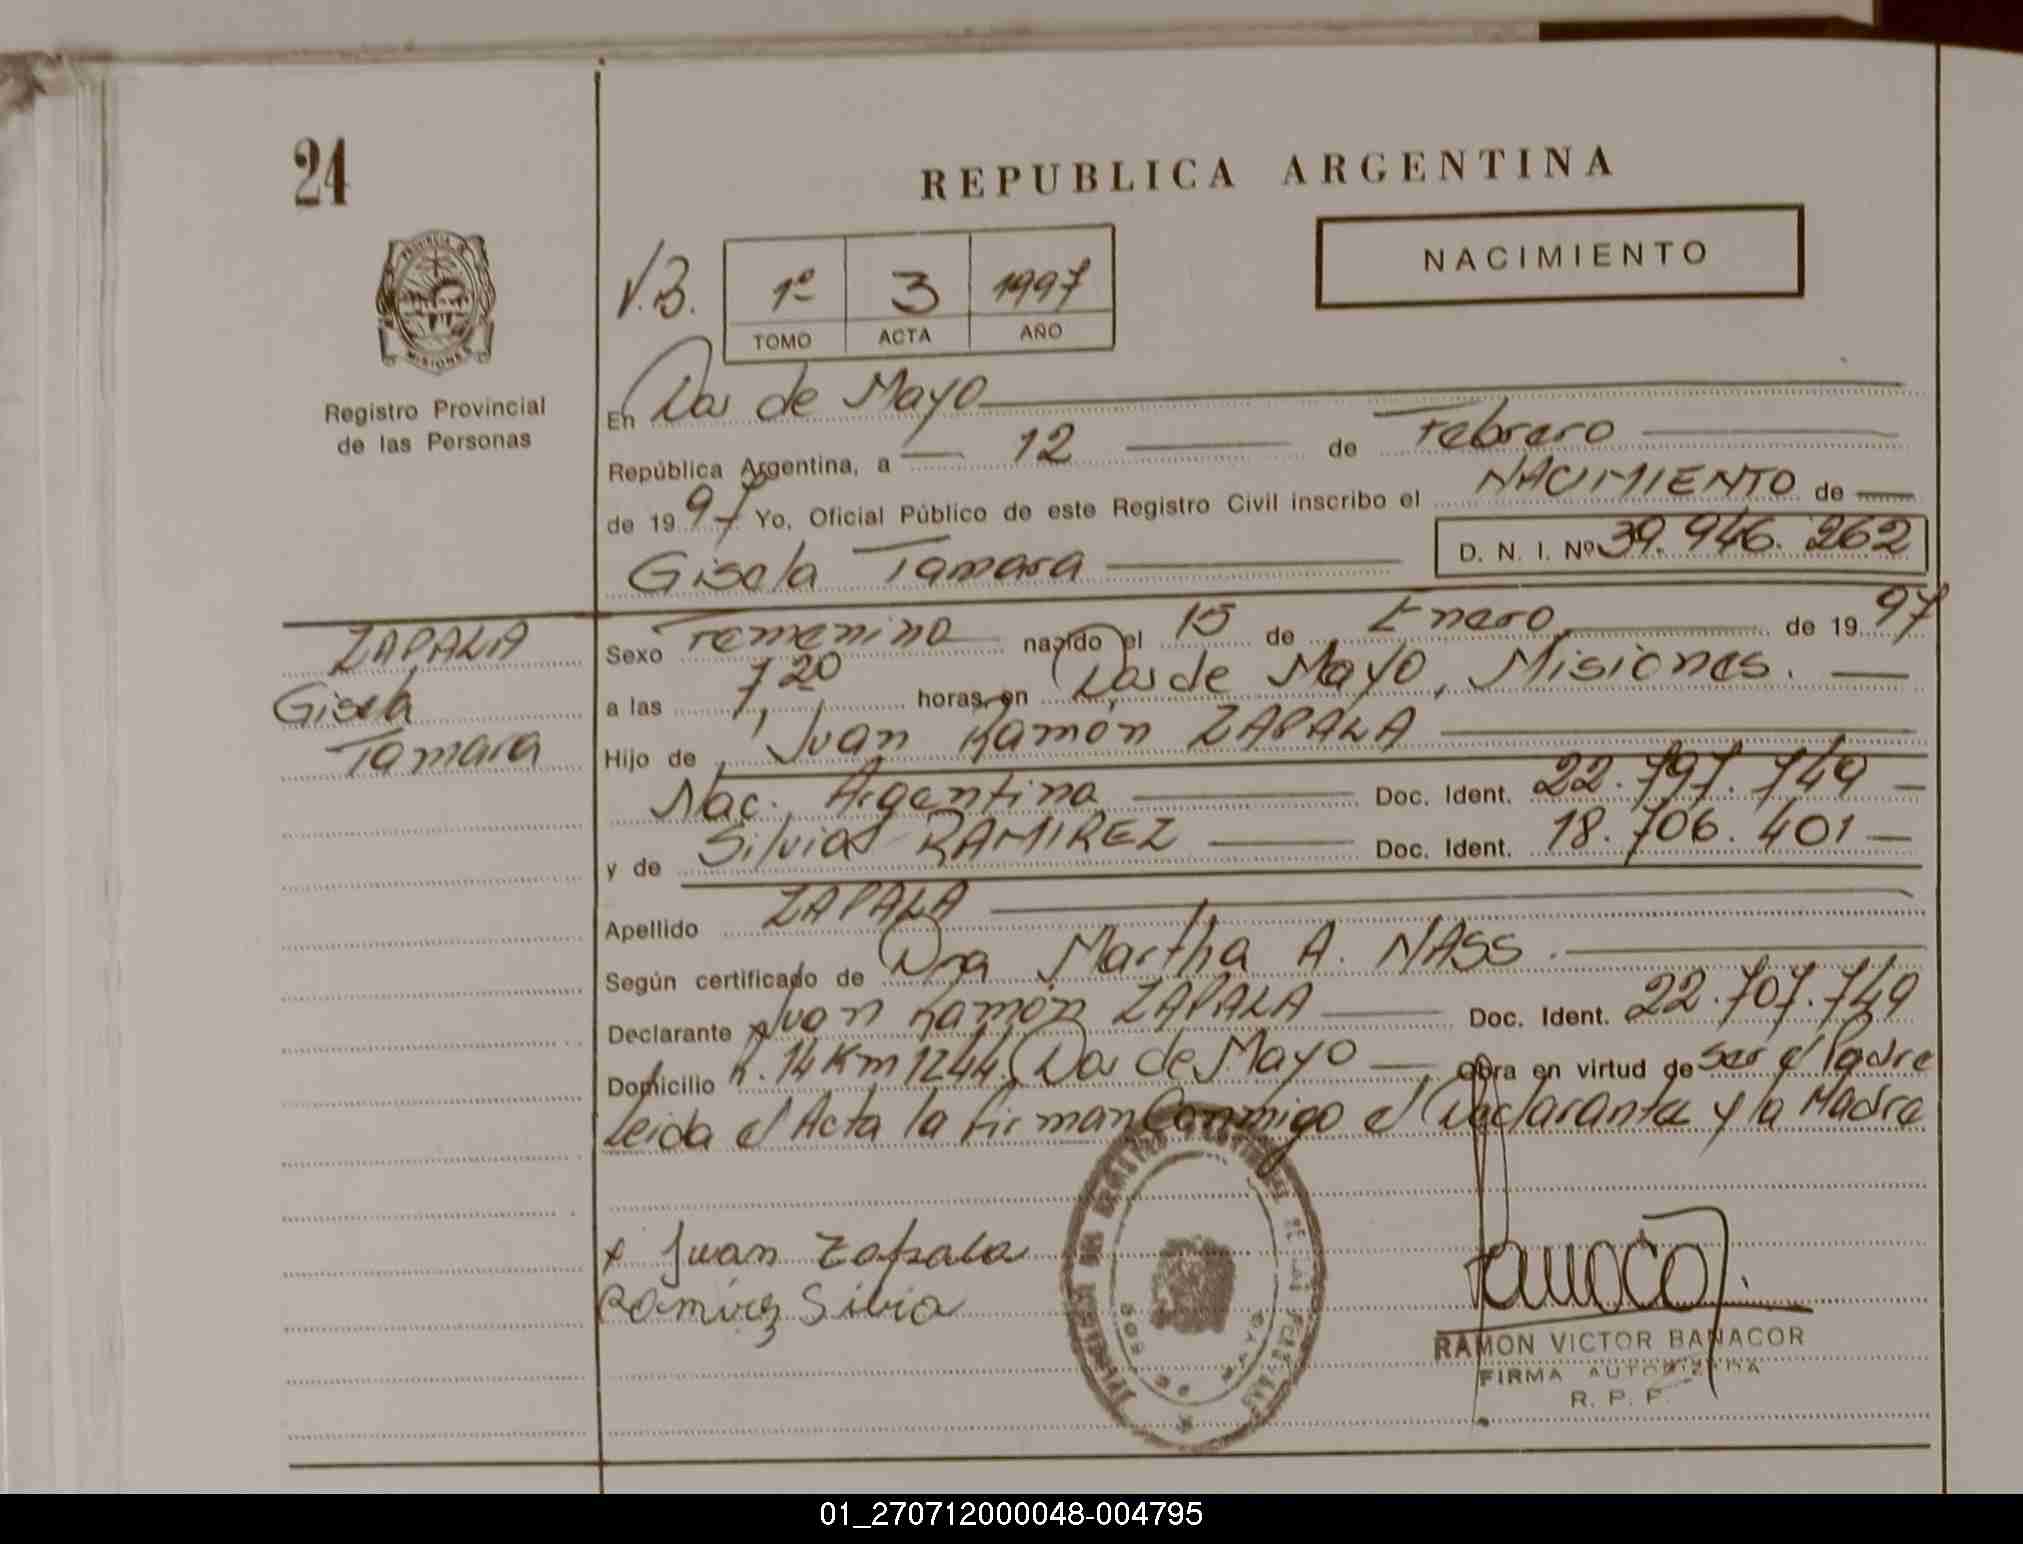 24
REPUBLICA ARGENTINA
NACIMIENTO
V.B.
1º 3 1997
TOMO ACTA AÑO
PROVINCIA DE
MISIONES
Registro Provincial
de las Personas
En Dos de Mayo
República Argentina, a 12 de Febrero
de 1997 Yo, Oficial Público de este Registro Civil inscribo el NACIMIENTO de
Gisela Tamara D. N. I. Nº 39.946.262
ZAPALA
Gisela
Tamara
Sexo Femenino nacido el 15 de Enero de 1997
a las 7,20 horas, en Dos de Mayo, Misiones.
Hijo de Juan Ramón ZAPALA
Nac. Argentina Doc. Ident. 22.797.749
y de Silvia RAMIREZ Doc. Ident. 18.706.401
Apellido ZAPALA
Según certificado de Dra Martha A. NASS.
Declarante Juan Ramón ZAPALA Doc. Ident. 22.707.749
Domicilio R.14 Km 1244. Dos de Mayo Obra en virtud de Ser el Padre
Leida el Acta la firman Conmigo el Declarante y la Madre
x Juan Zapala
Ramirez Silvia
RAMON VICTOR BANACOR
FIRMA AUTORIZADA
R. P. P.
01_270712000048-004795